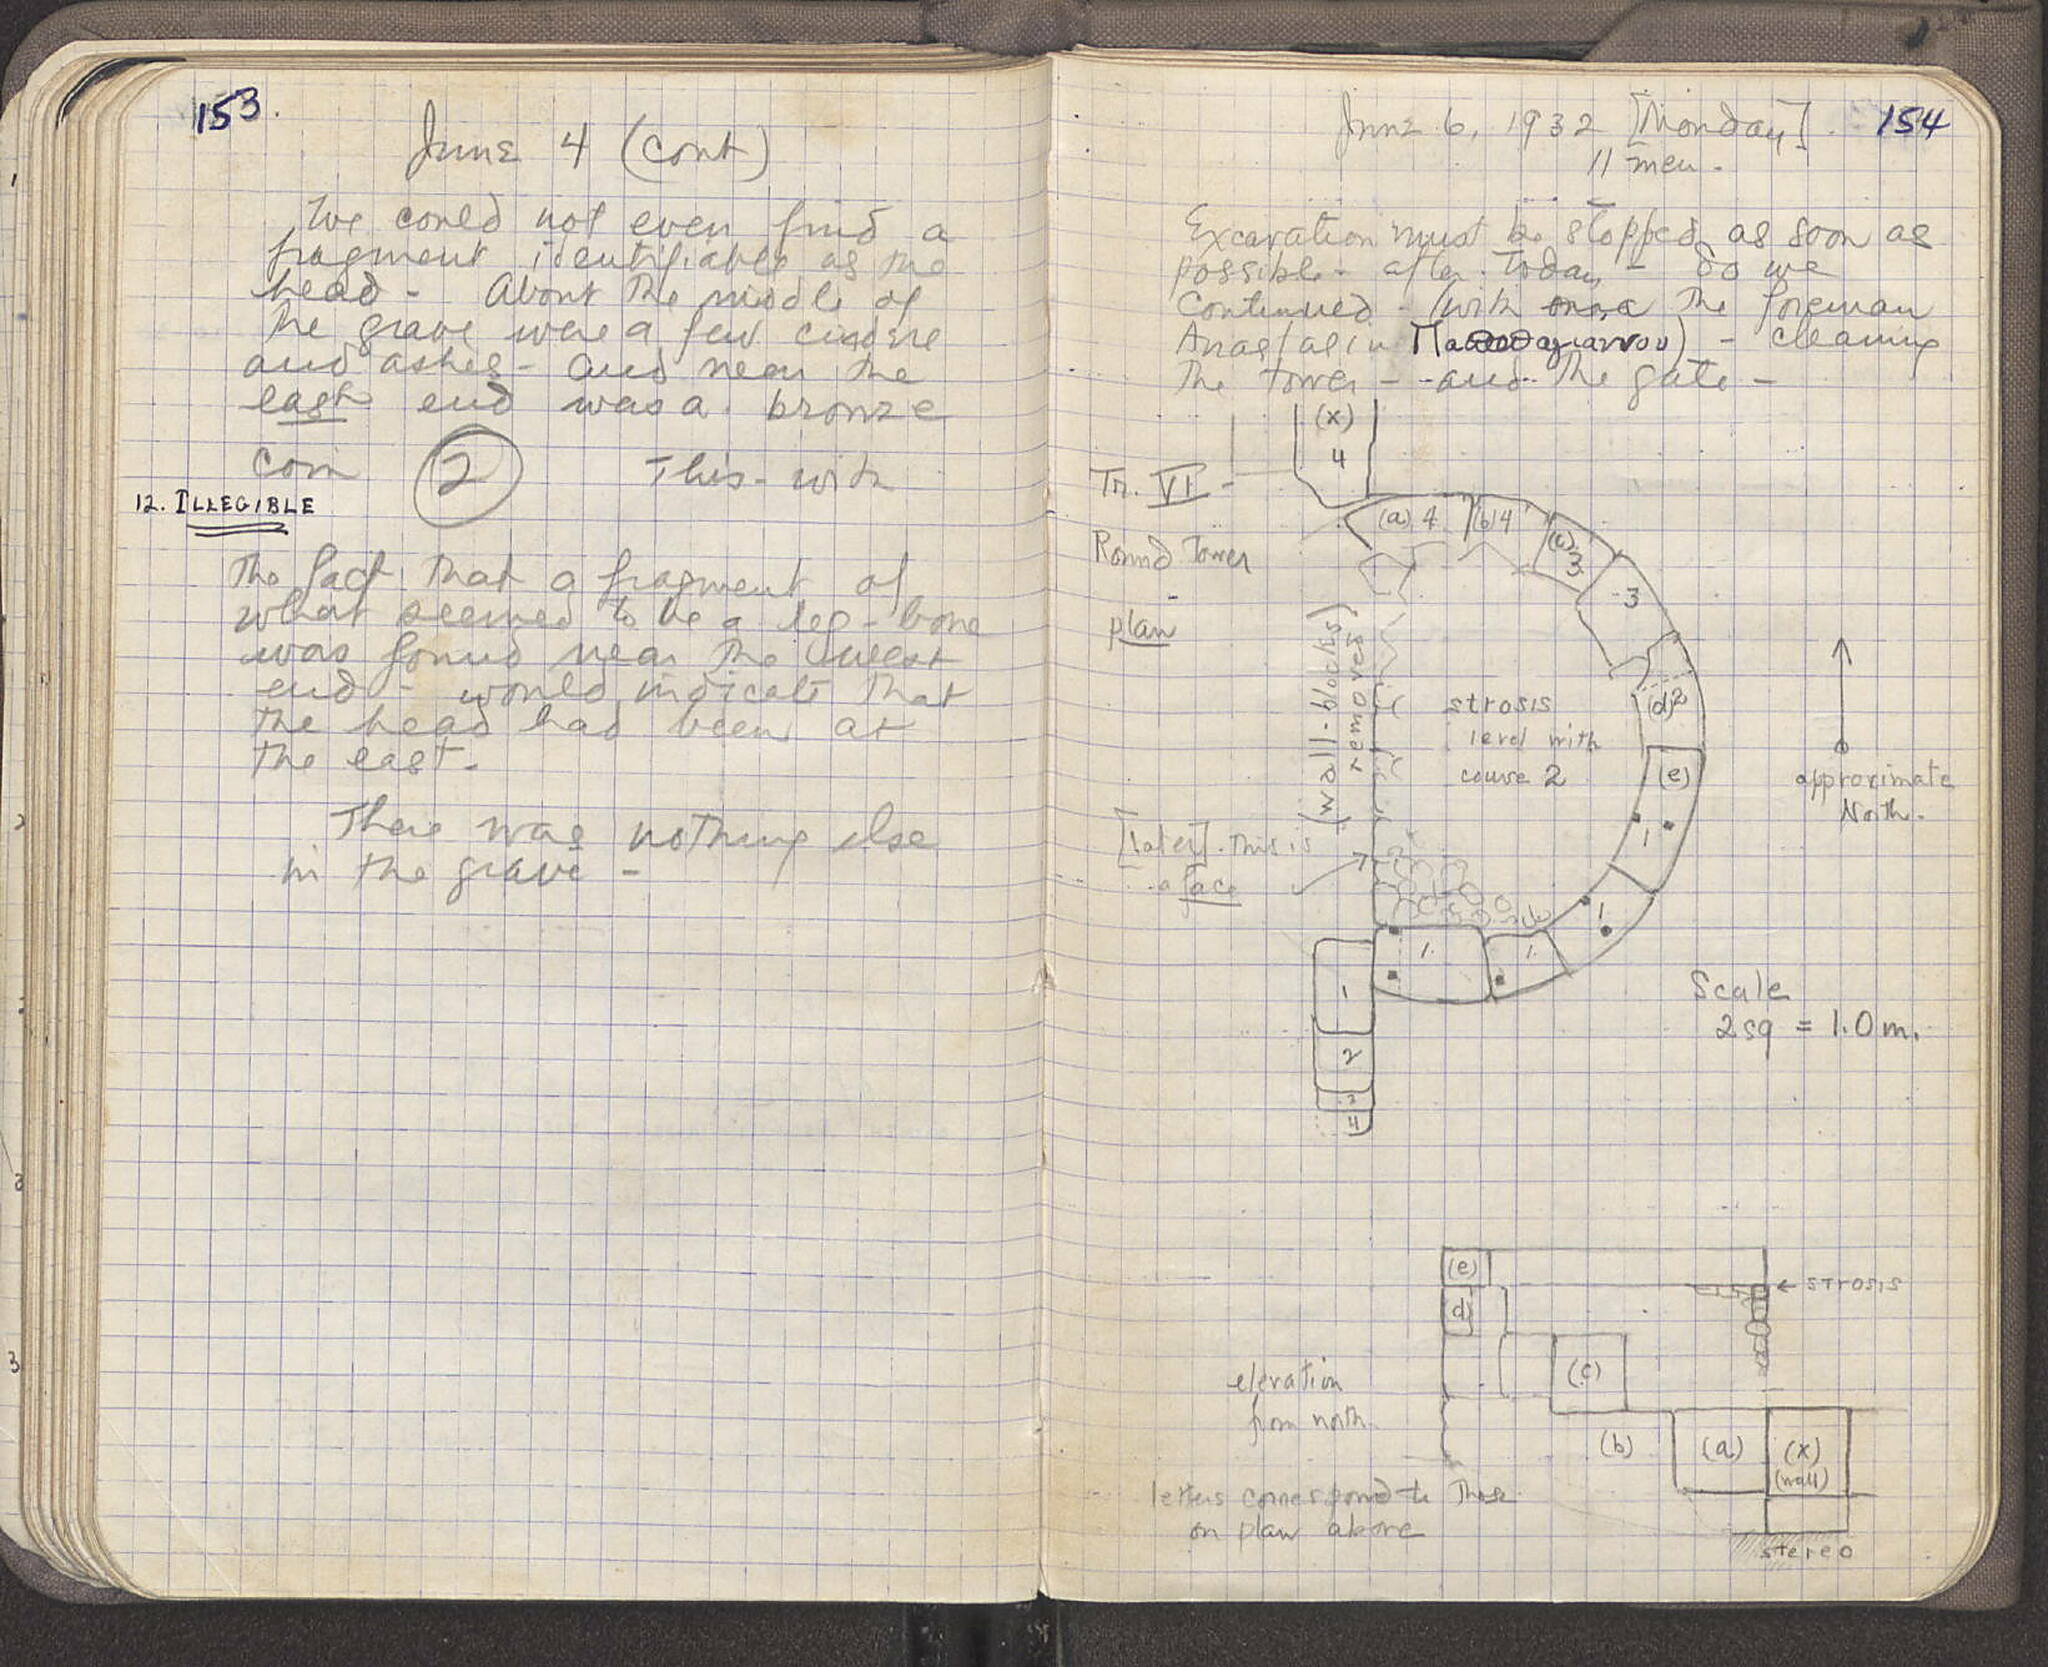 153.
June 4 (cont)
We could not even find a
fragment identifiable as the
head - About the middle of
the grave were a few cinders
and ashes - and near the
east end was a bronze
coin (2) This - with
12. ILLEGIBLE
The fact that a fragment of
what seemed to be a leg-bone
was found near the west
end - would indicate that
the head had been at
the east -
There was nothing else
in the grave -
June 6, 1932 [Monday]. 154
11 men -
Excavation must be stopped as soon as
possible - after today - so we
continued - (with the foreman
- cleaning
the tower - and the gate -
(x)
4
Tr. VI -
(a) 4 (b) 4
(c) 3
3
Round Tower
plan
(d) 2
(wall-blocks
removed)
strosis
level with
course 2
(e)
1
approximate
North -
[later]. This is
a face
1
1. 1.
1
2
3
4
Scale
2 sq = 1.0 m.
(e)
← strosis
(d)
(c)
elevation
from north
(b) (a) (x)
(wall)
letters correspond to those
on plan above
stereo